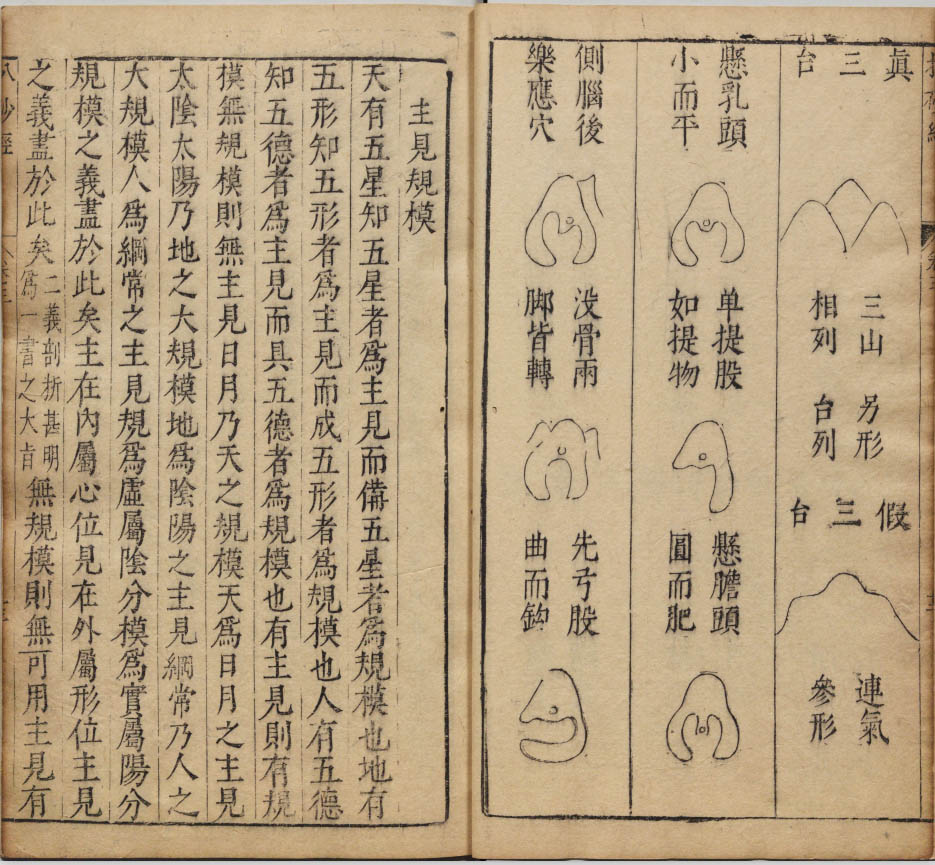 眞三台
三山
相列
另形
台列
假三台
連氣
參形
懸乳頭
小而平
单提股
如提物
懸膽頭
圓而肥
側腦後
樂應穴
没骨兩
脚皆轉
先弓股
曲而鈎
主見規模
天有五星知五星者爲主見而備五星者爲規模也地有
五形知五形者爲主見而成五形者爲規模也人有五德
知五德者爲主見而具五德者爲規模也有主見則有規
模無規模則無主見日月乃天之規模天爲日月之主見
太陰太陽乃地之大規模地爲陰陽之主見綱常乃人之
大規模人爲綱常之主見規爲虛屬陰分模爲實屬陽分
規模之義盡於此矣主在內屬心位見在外屬形位主見
之義盡於此矣二義剖析甚明爲一書之大旨無規模則無可用主見有